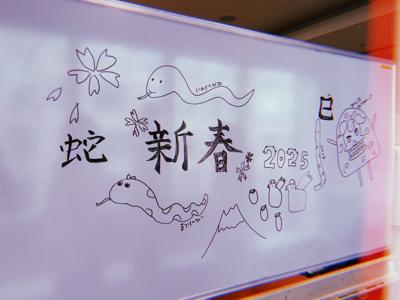 巳
蛇 新春 2025